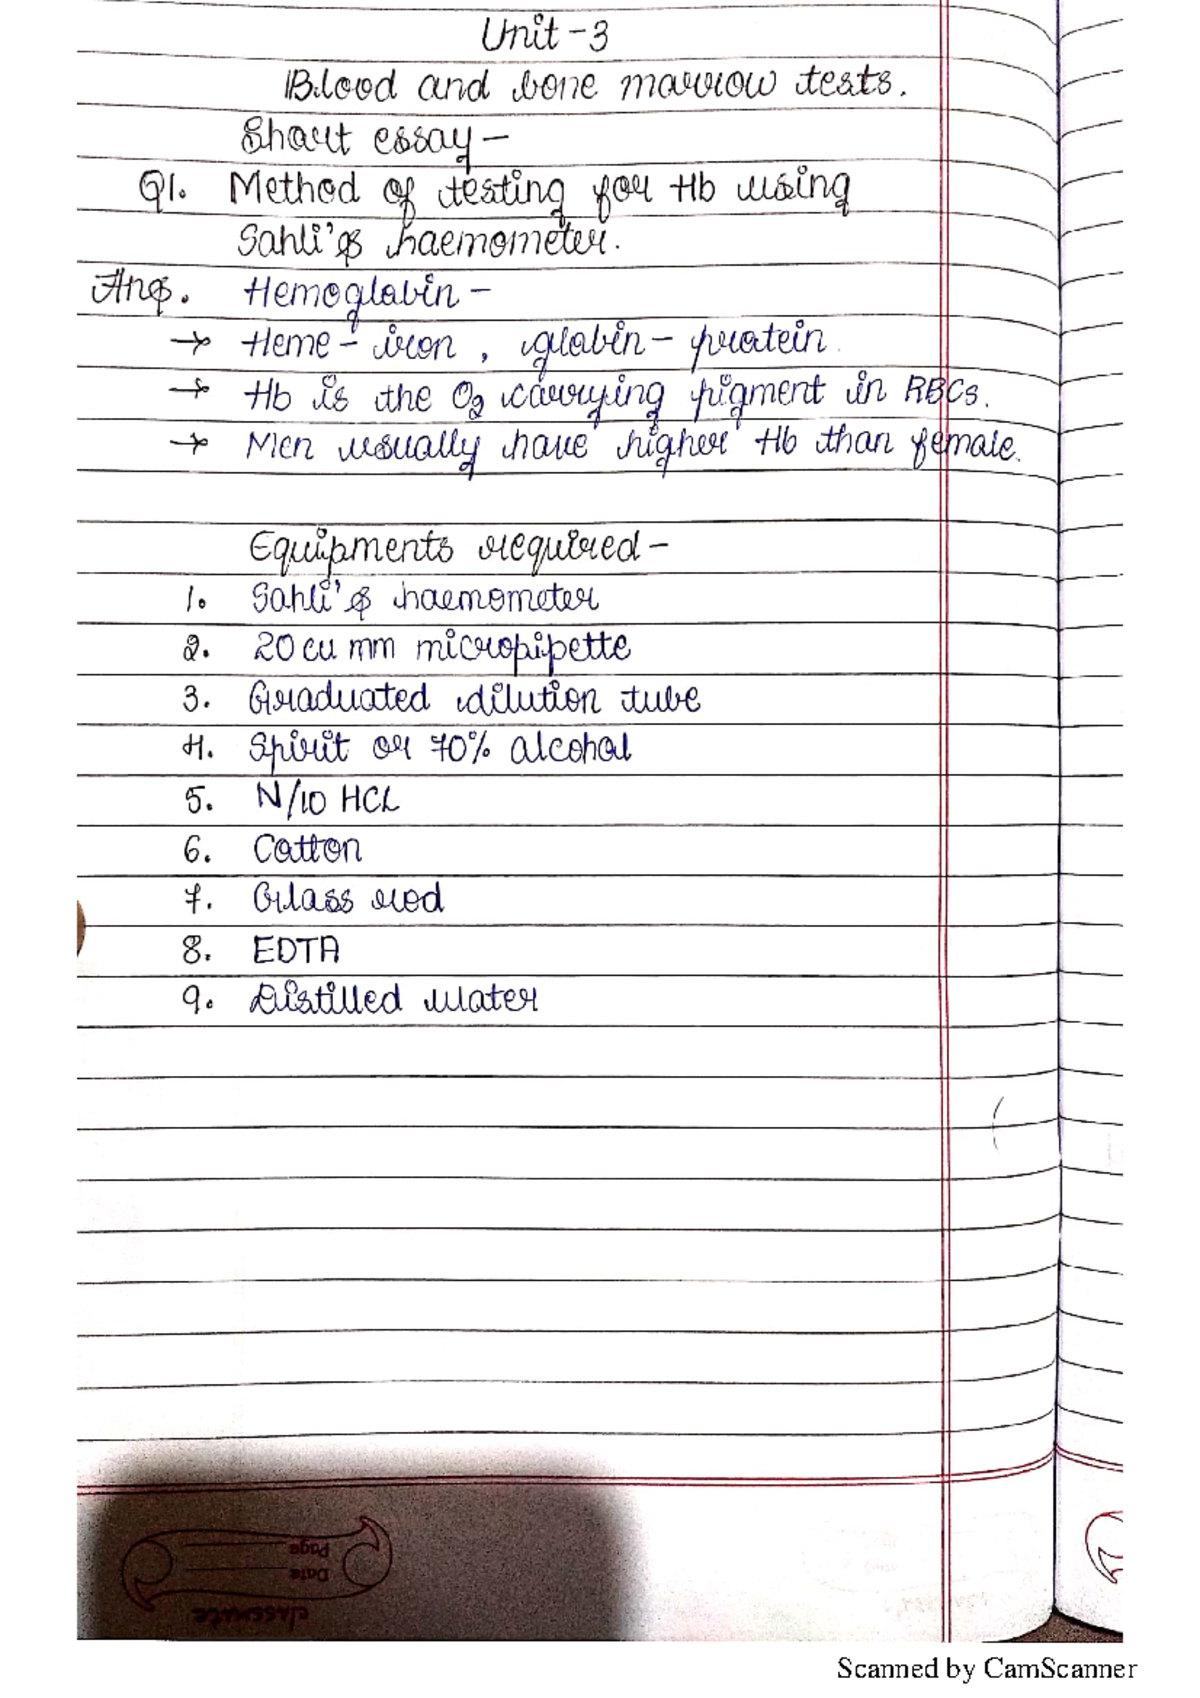 Unit-3
Blood and bone marrow tests.
Short essay-
Q1. Method of testing for Hb using
Sahli's haemometer.
Ans. Hemoglobin -
→ Heme - iron, globin - protein.
→ Hb is the O2 carrying pigment in RBCs.
→ Men usually have higher Hb than female.
Equipments required -
1. Sahli's haemometer
2. 20 cu mm micropipette
3. Graduated dilution tube
4. Spirit or 70% alcohol
5. N/10 HCL
6. Cotton
7. Glass rod
8. EDTA
9. Distilled water
Page
Date
classmate
Scanned by CamScanner